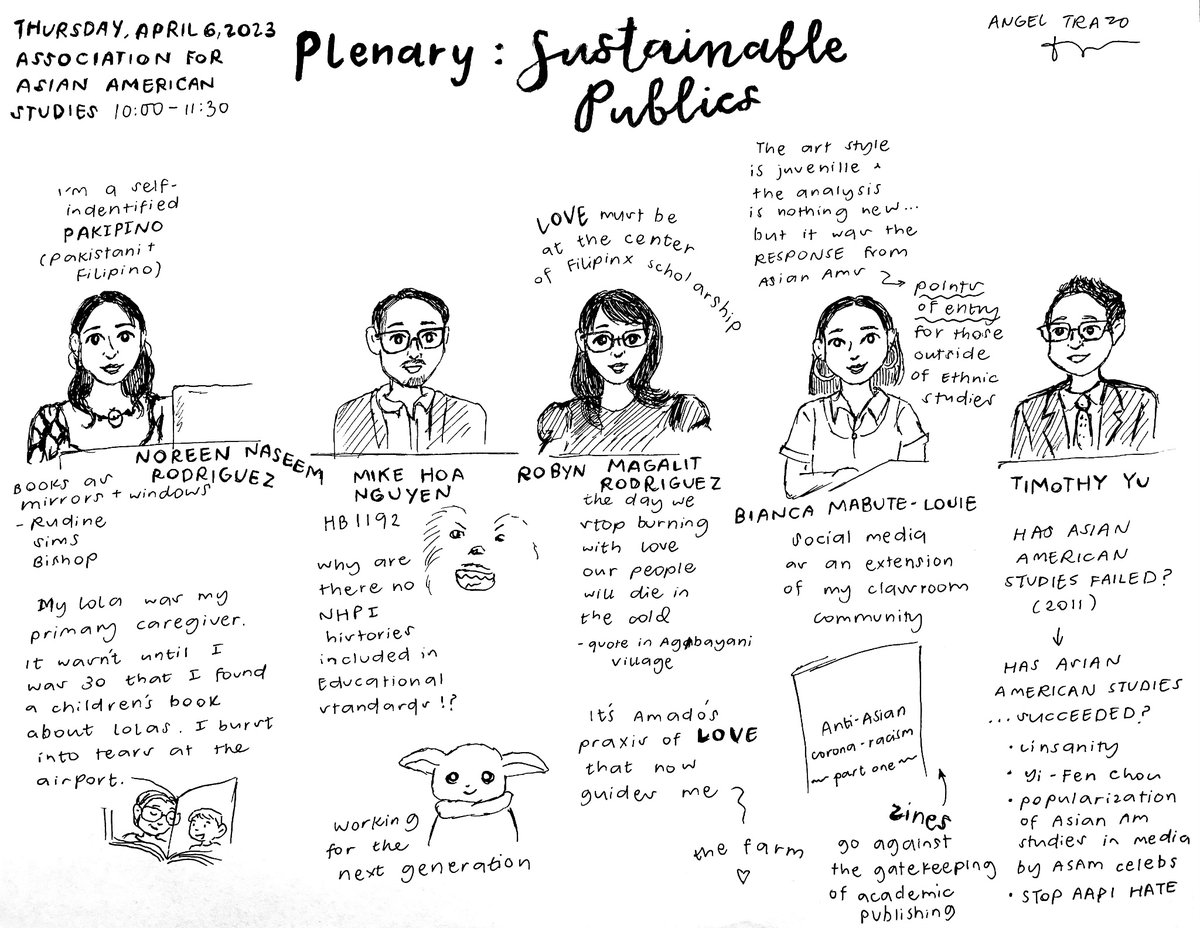 THURSDAY, APRIL 6, 2023
ASSOCIATION FOR
ASIAN AMERICAN
STUDIES 10:00 - 11:30
Plenary : Sustainable
Publics
ANGEL TRAZO
I'm a self-
indentified
PAKIPINO
(Pakistani +
Filipino)
NOREEN NASEEM
RODRIGUEZ
BOOKS as
mirrors + windows
- Rudine
Sims
Bishop
My lola was my
primary caregiver.
It wasn't until I
was 30 that I found
a children's book
about lolas. I burst
into tears at the
airport.
MIKE HOA
NGUYEN
HB 1192
why are
there no
NHPI
histories
included in
Educational
standards!?
working
for the
next generation
LOVE must be
at the center
of Filipinx scholarship
ROBYN MAGALIT
RODRIGUEZ
the day we
stop burning
with love
our people
will die in
the cold
- quote in Agbayani
village
It's Amado's
praxis of LOVE
that now
guides me
the farm
♡
The art style
is juvenille +
the analysis
is nothing new...
but it was the
RESPONSE from
Asian Ams
points
of entry
for those
outside
of Ethnic
studies
BIANCA MABUTE-LOUIE
social media
as an extension
of my classroom
community
Anti-Asian
corona-racism
~ part one ~
zines
go against
the gatekeeping
of academic
publishing
TIMOTHY YU
HAS ASIAN
AMERICAN
STUDIES FAILED?
(2011)
↓
HAS ASIAN
AMERICAN STUDIES
...SUCCEEDED?
• Linsanity
• Yi-Fen Chou
• popularization
of Asian Am
studies in media
by ASAM celebs
• STOP AAPI HATE